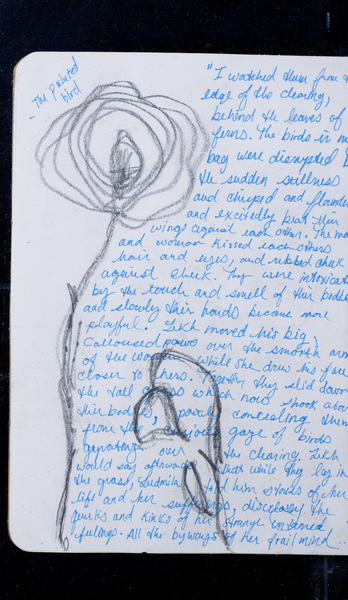 - The Painted
bird
"I watched them from the
edge of the clearing,
behind the leaves of
ferns. The birds in my
bag were disrupted by
the sudden stillness
and chirped and flounder
and excitedly beat their
wings against each other. The man
and woman kissed each others
hair and eyes, and rubbed cheek
against cheek. They were intoxicat
by the touch and smell of their bodies
and slowly their hands became more
playful. Lekh moved his big,
calloused paws over the smooth arms
of the woman while she drew his face
closer to hers. Together they slid down
the tall grass which now shook above
their bodies, partly concealing them
from the curious gaze of birds
gyrating over the clearing. Lekh
would say afterwards that while they lay in
the grass, Ludmila told him stories of her
life and her sufferings, disclosing the
quirks and kinks of her strange untamed
feelings. All the byways of her frail mind...